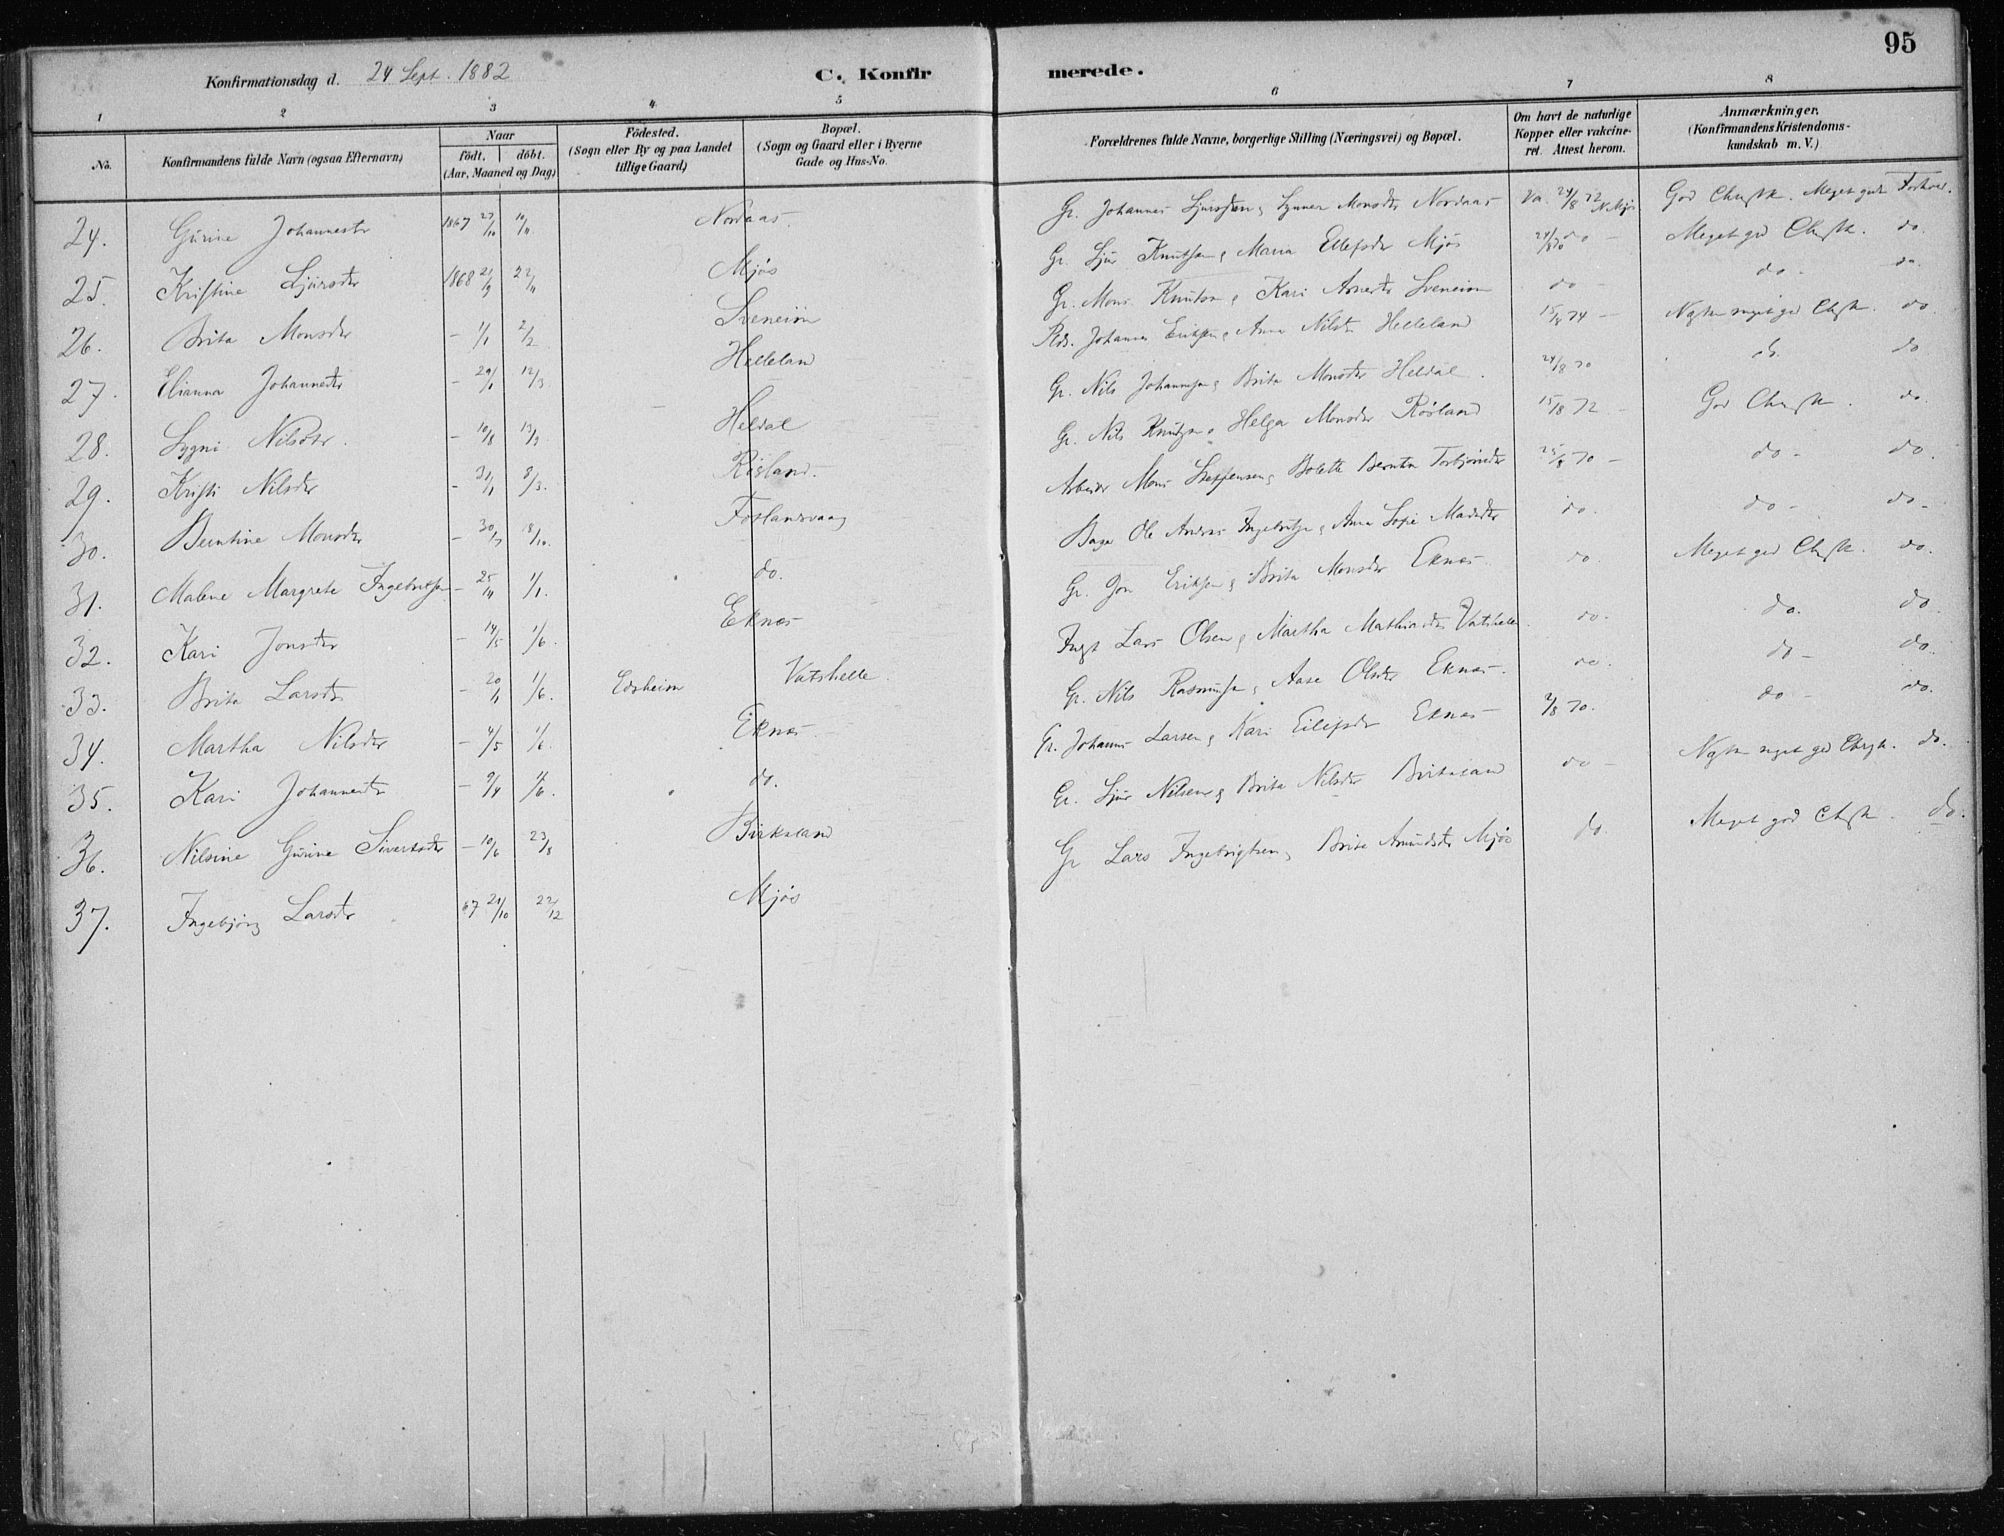 95
Konfirmationsdag d. 24 Sept. 1882 C. Konfirmerede.
1 2 3 4 5 6 7 8
No. Konfirmandens fulde Navn (ogsaa Efternavn) Naar født, døbt. (Aar, Maaned og Dag) Fødested. (Sogn eller By og paa Landet tillige Gaard) Bopæl. (Sogn og Gaard eller i Byerne Gade og Hus-No. Forældrenes fulde Navne, borgerlige Stilling (Næringsvei) og Bopæl. Om havt de naturlige Kopper eller vakcineret. Attest herom. Anmærkninger. (Konfirmandens Kristendomskundskab m. V.)
24. Gurine Johannesdtr 1867 27/10 10/11 Nordaas Gr. Johannes Monsdtr Nordaas Va. 24/8 72 N. Mjøs God Chrstk. Meget godt Forhol.
25. Kristine Sjursdtr 1868 21/9 22/11 Mjøs Gr. Sjur Knutsen & Maria Ellefsdtr Mjøs 24/8 70 - Meget god Chrstk. do.
26. Brita Monsdtr - 1/1 2/2 Sveneim Gr. Mons Knutsen & Kari Arnesdtr Sveneim do - do - do.
27. Elianna Johannesdtr - 29/1 12/3. Helleland Pds. Johannes Eriksen & Anna Nilsdtr Helleland 15/8 74 - Næsten meget god Chrstk. do
28. Sygni Nilsdtr. - 10/8 13/9. Heldal Gr. Nils Johannesen & Brita Monsdtr Heldal. 24/8 70 do. do
29. Kristi Nilsdtr - 31/1 8/3. Røsland. Gr. Nils Knutsen & Helga Monsdtr Røsland 15/8 72 - God Chrstk. do.
30. Berntine Monsdtr - 30/7 18/10. Foslandsvaag Arbeider Mons Steffensen & Bolette Berntine Torbjørnsdtr 25/8 70 - do - do.
31. Malene Margrete Ingebritsen - 25/11 1/1. do. Bager Ole Andreas Ingebritsen & Anna Sofie Madsdtr do. do - do -
32. Kari Jonsdtr - 14/5 1/6. Eknæs Gr. Jon Eriksen & Brita Monsdtr Eknæs. do Meget god Chrstk. do.
33. Brita Larsdtr - 20/1 1/6. Edsheim Vatshelle. Lars Olsen & Martha Mathiasdtr Vatshelle. do. do. do
34. Martha Nilsdtr - 4/5 1/6. Eknæs Gr. Nils Rasmusen & Aase Olsdtr Eknæs. do. do - do.
35. Kari Johannesdtr - 9/4 1/6. do. Gr. Johannes Larsen & Kari Eilefsdtr Eknæs 2/8 70. do - do.
36. Nilsine Gurine Sivertsdtr - 10/6 23/8 Birkeland Gr. Sjur Nilsen & Brita Nilsdtr Birkeland do - Næsten meget god Chrstk. do.
37. Ingebjørg Larsdtr 67 21/10 22/12 Mjøs Gr Lars Ingebrigtsen & Brita Amundsdtr Mjøs do. Meget god Chrstk. do.